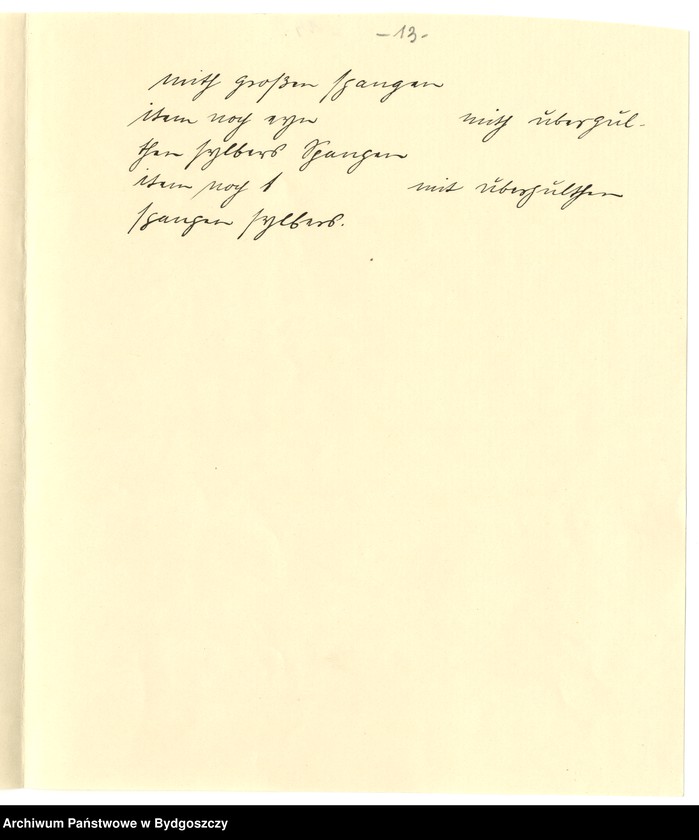 -13-
mith großen spangen
item noch eyn mith übergül-
then sylbers Spangen
item noch 1 mit übergülthen
spangen sylbers.
Archiwum Państwowe w Bydgoszczy